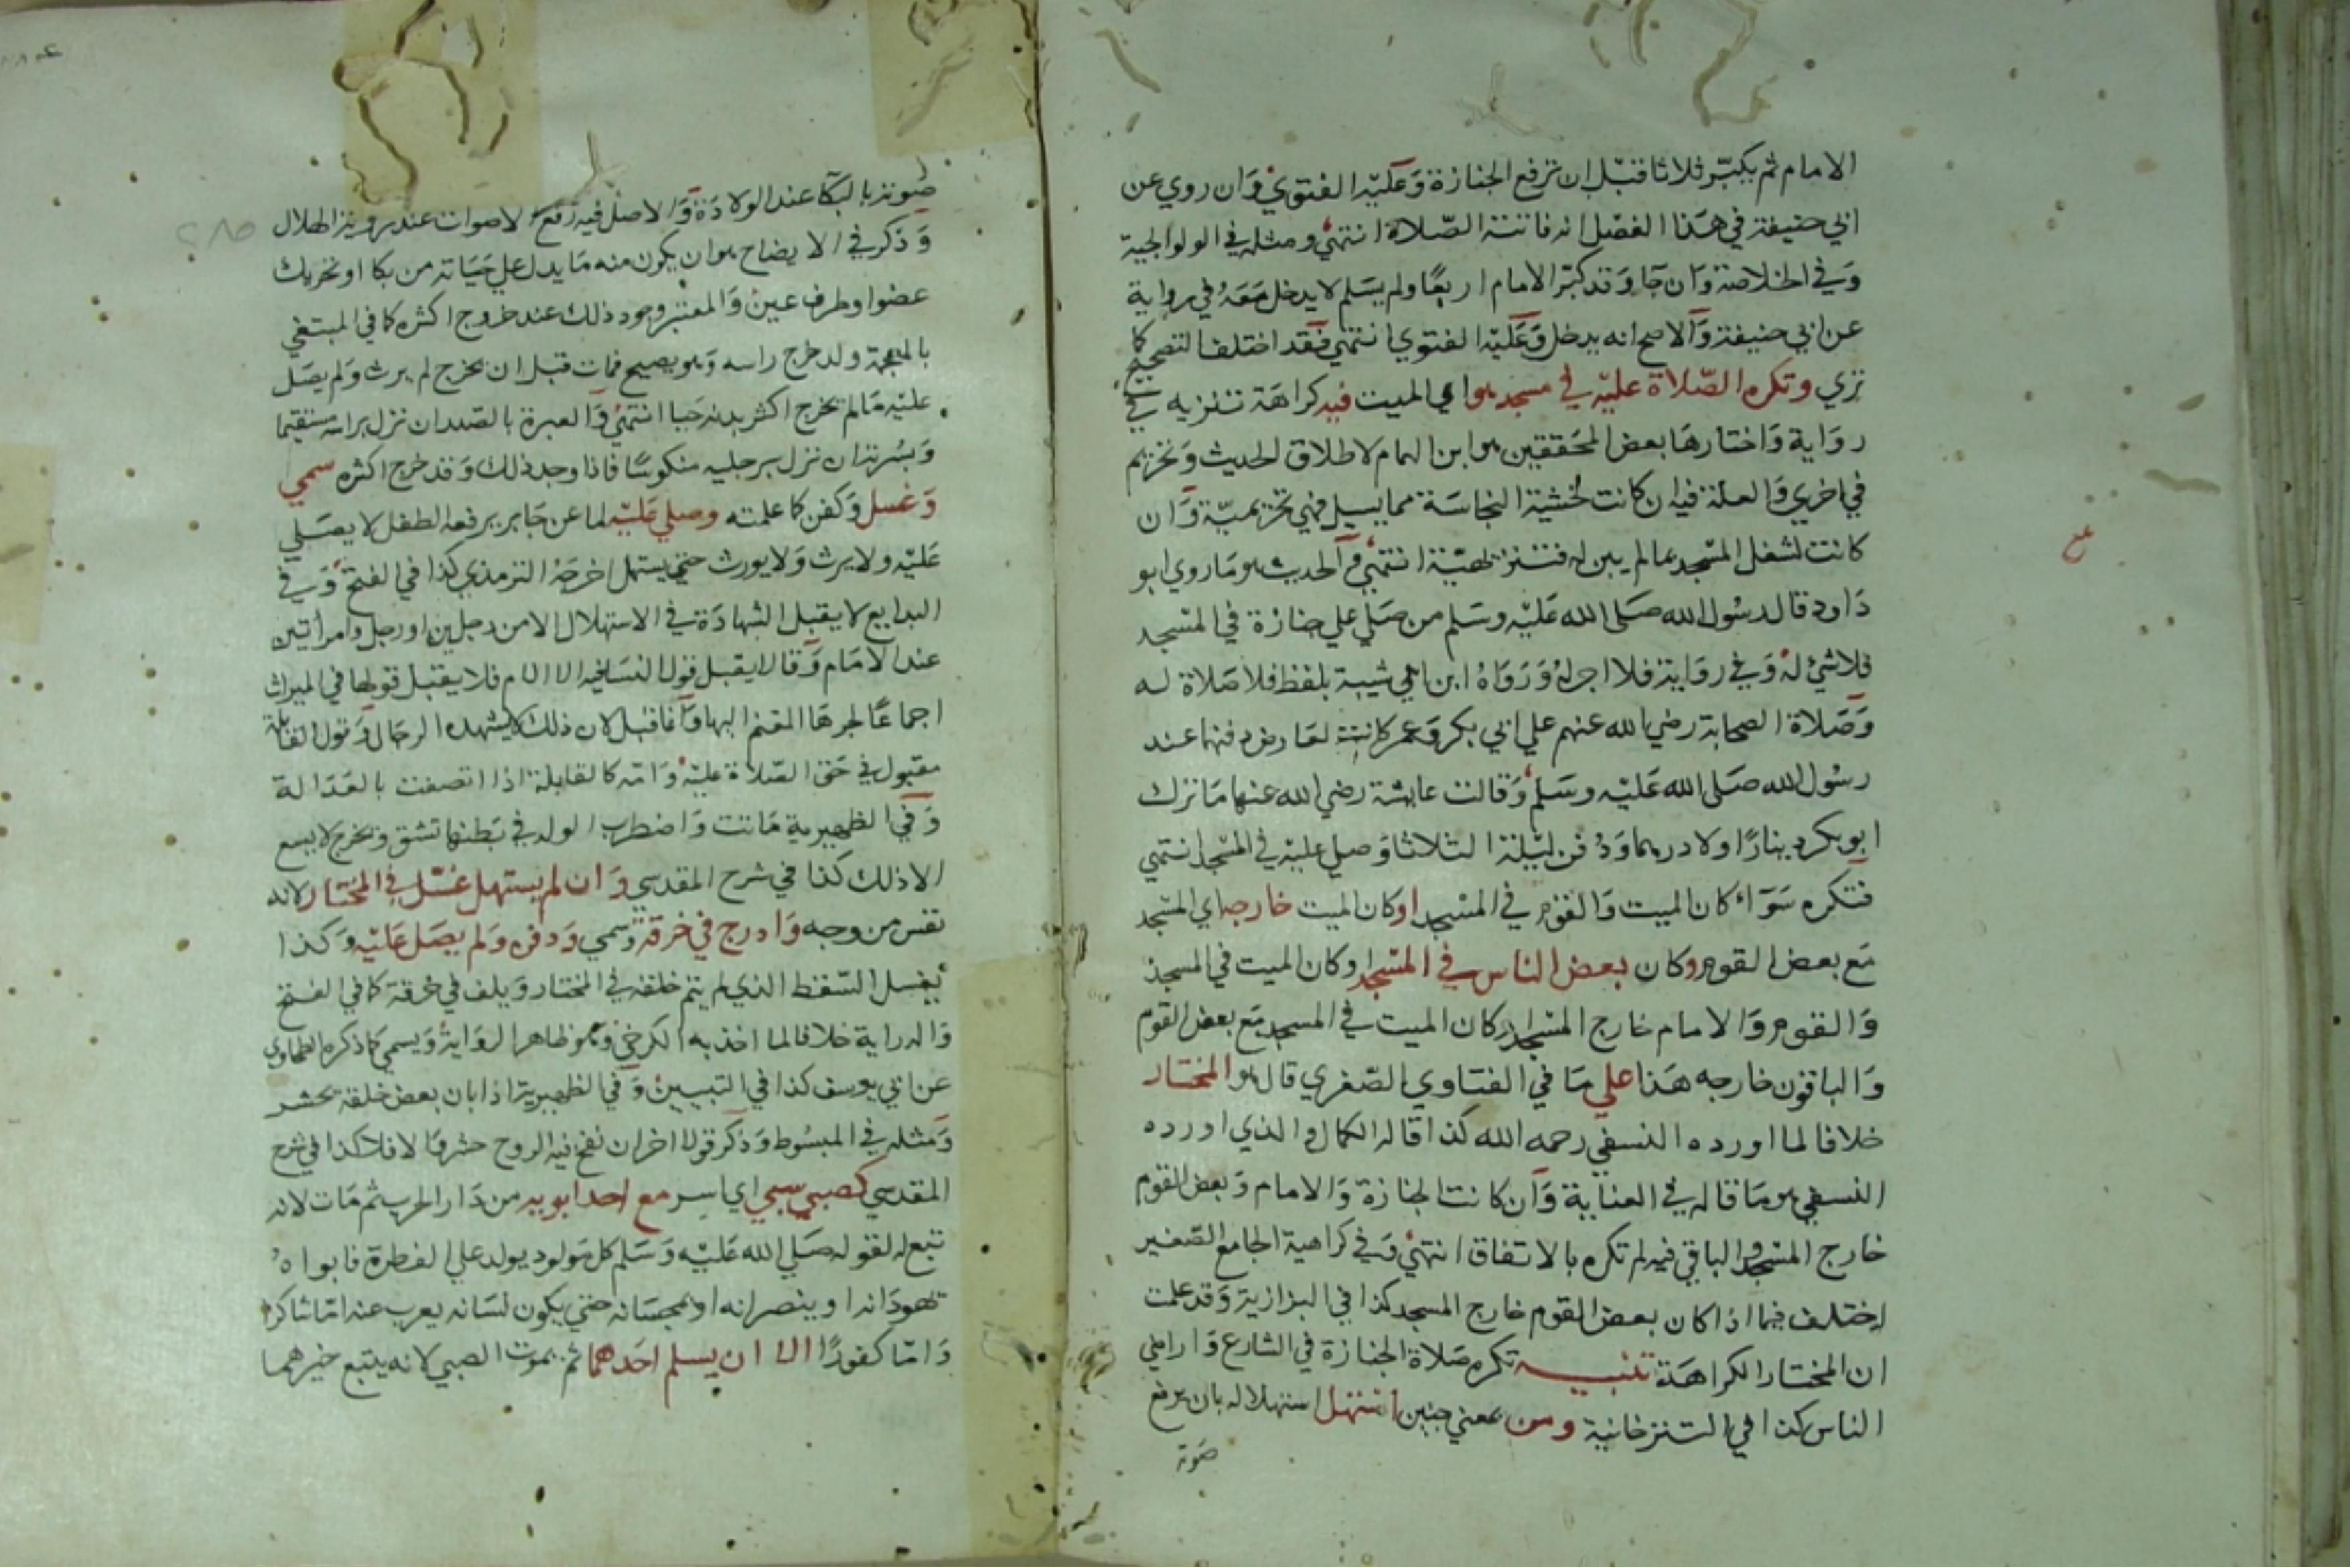 الامام ثم يكبر ثلاثا قبل ان ترفع الجنازة وعليه الفتوي وان روي عن
ابي حنيفة في هذا الفصل انه فاتته الصلاة انتهي ومثله في الولوالجية
وفي الخلاصة وان جا وقد كبر الامام اربعا ولم يسلم لا يدخل معه في رواية
عن ابي حنيفة والاصح انه يدخل وعليه الفتوي انتهي فقد اختلف التصحيح كما
تري وتكره الصلاة عليه في مسجد هو اي الميت فيه كراهة تنزيه في
رواية واختارها بعض المحققين هو ابن الهمام لاطلاق الحديث وتحريم
في اخري والعلة فيه ان كانت لخشية النجاسة مما يسيل فهي تحريمية وان
كانت لشغل المسجد بما لم يبن له فتنزيهية انتهي والحديث هو ما روي ابو
داود قال رسول الله صلى الله عليه وسلم من صلي علي جنازة في المسجد
فلا شئ له وفي رواية فلا اجر له ورواه ابن ابي شيبة بلفظ فلا صلاة له
وصلاة الصحابة رضي الله عنهم علي ابي بكر وعمر كانت لعارض دفنهما عند
رسول الله صلى الله عليه وسلم وقالت عايشة رضي الله عنها ما ترك
ابو بكر دينارا ولا درهما ودفن ليلة الثلاثا وصلي عليه في المسجد انتهي
فتكره سواء كان الميت والقوم في المسجد او كان الميت خارجه اي المسجد
مع بعض القوم وكان بعض الناس في المسجد او كان الميت في المسجد
والقوم والامام خارج المسجد او كان الميت في المسجد مع بعض القوم
والباقون خارجه هذا علي ما في الفتاوي الصغري قال هو المختار
خلافا لما اورده النسفي رحمه الله كذا قاله الكمال والذي اورده
النسفي هو ما قاله في العناية وان كانت الجنازة والامام وبعض القوم
خارج المسجد والباقي فيه لم تكره بالاتفاق انتهي وفي كراهية الجامع الصغير
اختلف فيما اذا كان بعض القوم خارج المسجد كذا في البزازية وقد علمت
ان المختار الكراهة تنبيه تكره صلاة الجنازة في الشارع واراضي
الناس كذا في التترخانية ومن بمعني جنين استهل استهلاله بان يرفع
صوته
صوته بالبكا عند الولادة والاصل فيه رفع الاصوات عند روية الهلال
وذكر في الايضاح هو ان يكون منه ما يدل علي حياته من بكا او تحريك
عضو او طرف عين والمعتبر وجود ذلك عند خروج اكثره كما في المبتغي
بالمعجمة ولد خرج راسه وهو يصيح فمات قبل ان يخرج لم يرث ولم يصل
عليه ما لم يخرج اكثر بدنه حيا انتهي والعبرة بالصدر ان نزل براسه مستقيما
وبسرته ان نزل برجليه منكوسا فاذا وجد ذلك وقد خرج اكثره سمي
وغسل وكفن كما علمته وصلي عليه لما عن جابر يرفعه الطفل لا يصلي
عليه ولا يرث ولا يورث حتي يستهل اخرجه الترمذي كذا في الفتح وفي
البدايع لا يقبل الشهادة في الاستهلال الا من رجلين او رجل وامراتين
عند الامام وقالا يقبل قول النسا فيه الا الام فلا يقبل قولها في الميراث
اجماعا لجرها المغنم اليها وانما قبل لان ذلك لا يشهده الرجال وقول القابلة
مقبول في حق الصلاة عليه وامه كالقابلة اذا اتصفت بالعدالة
وفي الظهيرية ماتت واضطرب الولد في بطنها تشق ويخرج لا يسع
الا ذلك كذا في شرح المقدسي وان لم يستهل غسل في المختار لانه
نفس من وجه وادرج في خرقة وسمي ودفن ولم يصل عليه وكذا
يغسل السقط الذي لم يتم خلقه في المختار ويلف في خرقة كما في الفتح
والدراية خلافا لما اخذ به الكرخي وهو ظاهر الرواية ويسمي كما ذكره الطحاوي
عن ابي يوسف كذا في التبيين وفي الظهيرية اذا بان بعض خلقه يحشر
ومثله في المبسوط وذكر قولا اخر ان نفخ فيه الروح حشر والا فلا كذا في شرح
المقدسي كصبي سبي اي اسر مع احد ابويه من دار الحرب ثم مات لانه
تبع له لقوله صلي الله عليه وسلم كل مولود يولد علي الفطرة فابواه
يهودانه او ينصرانه او يمجسانه حتي يكون لسانه يعرب عنه اما شاكرا
واما كفورا الا ان يسلم احدهما ثم يموت الصبي لانه يتبع خيرهما